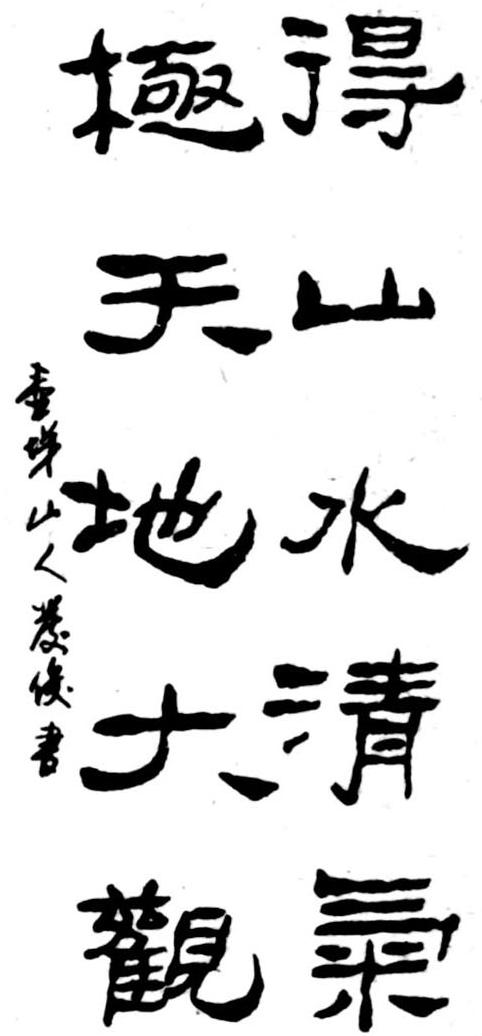 得山水清氣
極天地大觀
山人發俊書